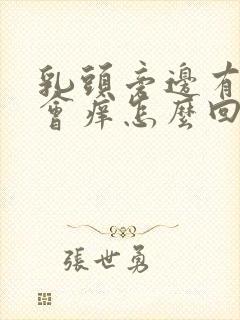 乳頭旁邊有
會癢怎麼回
張世勇